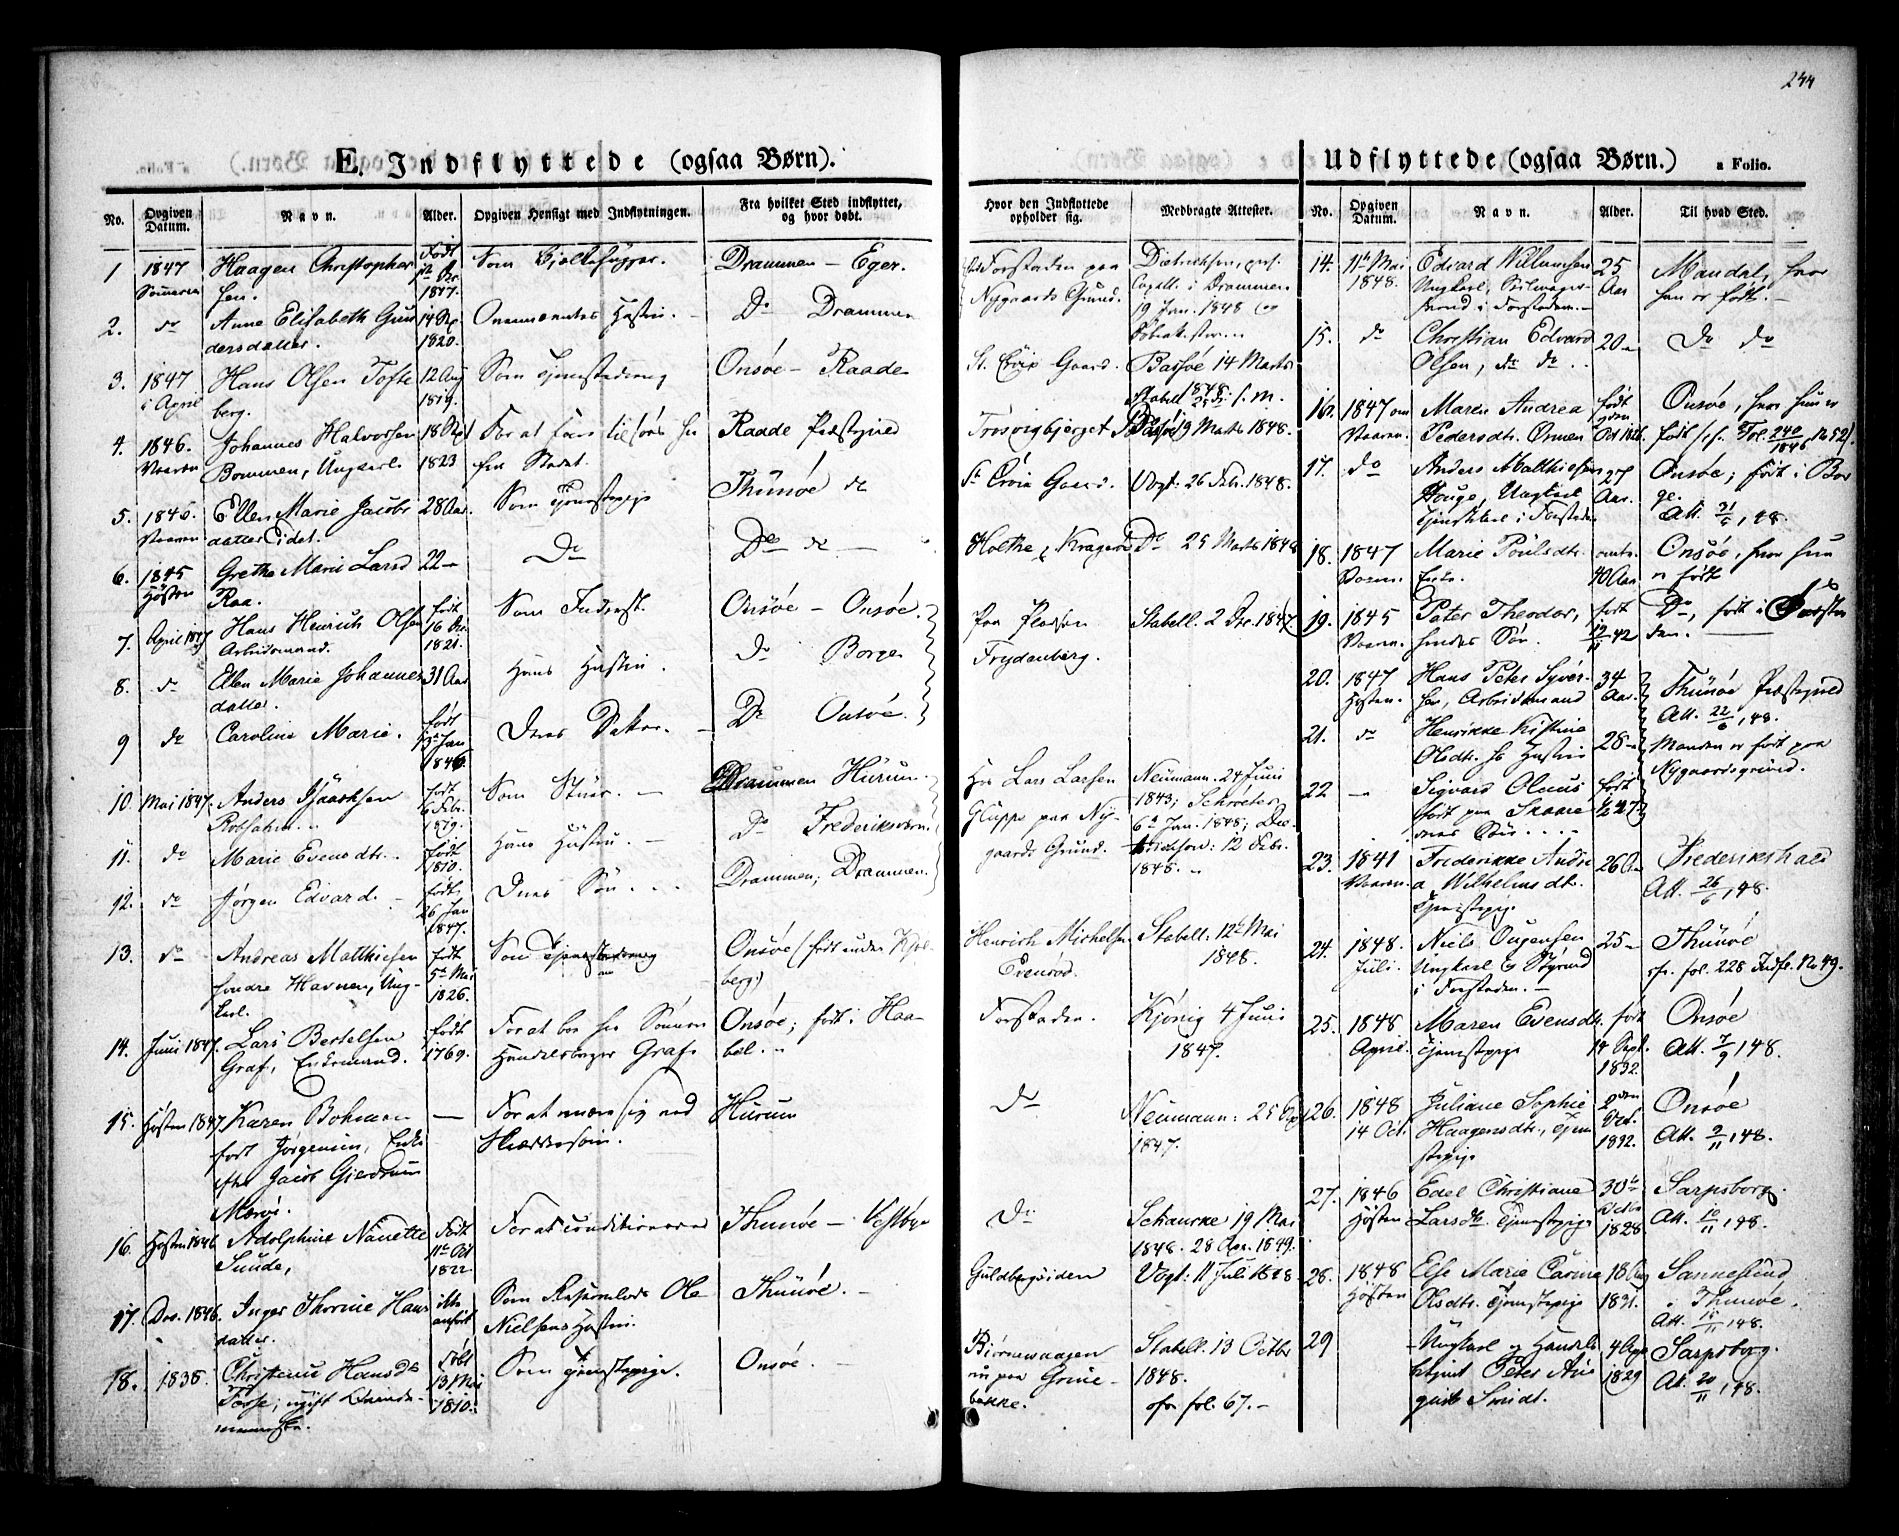 244
E. Indflyttede (ogsaa Børn).
No.
Opgiven Datum.
Navn.
Alder.
Opgiven Hensigt med Indflytningen.
Fra hvilket Sted indflyttet, og hvor døbt.
1
1847
Haagen Christopher
sen.
Født
1847.
Som
Drammen – Eger.
2.
do
Anne Elisabeth Gun
dersdatter.
1820.
Ovennævntes Hustru. –
Do Drammen
3.
1847
i April
Hans Olsen Tofte
berg.
12 Aug
1819.
Som Tjenestedreng
Onsøe – Raade
4.
1846.
Vaaren
Johannes Halvorsen
Bommen, Ungkarl.
1823
For at
fra Stedet.
Raade Præstegjeld
5.
1846.
Vaaren
Ellen Marie Jacobs
datter Eidet.
28 Aar.
Som Tjenestepige
Thunøe do
6.
1845
Høsten
Grethe Marie Larsd
Raa.
22 –
Do
Do do –
7.
April 1847
Hans Henrich Olsen
Arbeidsmand.
født
1821.
Som Inderst.
Onsøe – Onsøe.
8.
do
Ellen Marie Johannes
datter.
31 Aar
Hans Hustru.
Do Borge
9
do
Caroline Marie.
født
Jan
1846.
Deres Datter. –
Do Onsøe.
10.
Mai 1847.
Anders Isaachsen
Robsahm.
født
6 Febr.
1819.
Som –
Drammen Hurum.
11.
do
Marie Evensdtr.
født
1810.
Hans Hustru. –
Do Frederiksværn.
12.
do
Jørgen Edvard. –
født
26 Jan
1847.
Deres Søn.
Drammen; Drammen.
13.
do
Andreas Matthiesen
søndre Havnen, Ung-
karl.
født
5te Mai
1826.
Som Tjenestedreng
Onsøe (født under Kjøl
berg)
14.
Juni 1847.
Lars Bertelsen
Graf, Enkemand.
født
1769.
For at boe hos Sønnen
Handelsborger Graf.
Onsøe; født i Haa-
bøl.
15.
Høsten 1847
Karen Bohman
født Jørgensen, Enke
efter Jacob Gjerdrum
–
For at nære sig ved
Hurum
16.
Høsten 1846
Adolphine Nanette
Sunde,
Født
11te Oct
1822.
For at conditionere
Thunøe – Vestbye
17.
Dec. 1846.
Inger Thorine Hans
datter.
ikke
anført
Som Ole
Nielsens Hustru.
Thunøe. –
18.
1838.
Christine Hansdtr
Født
13 Mai
1810.
Som Tjenestepige.
Onsøe. –
Hvor den Indflyttede opholder sig.
Medbragte Attester.
Forstaden paa
Nygaards Grund.
Diedrichsen, pers.
Capell. i Drammen
19 Jan. 1848
Gaard.
Bassøe 14 Marts
1848
Trosvigbjerget
Bassøe 19 Marts 1848.
Gaard.
Vogt: 26 Febr. 1848.
Holthe
Do 25 Marts 1848
Paa Pladsen
Frydenberg.
Stabell. 2 Dec. 1847
Hr Lars Larsen
Gluppe paa Ny-
gaards Grund.
Neumann. 24 Juni
1843; Schrøeter
6te Jan. 1848; Die-
drichsen: 12 Febr.
1848.
Henrich Michelsen
Evenrød.
Stabell. 12te Mai
1848.
Forstaden.
Kjønig 4 Juni
1847.
Do
Neumann: 25
1847.
Do
Schancke 19 Mai
1848. 28 Apr. 1849.
Guldbergsiden
Vogt: 11 Juli 1848
Bjørnevaagen
nu paa Grine-
bakke.
Stabell. 13 Octbr
1848.
cfr fol. 67. –
Udflyttede (ogsaa Børn.)
a Folio.
No.
Opgiven Datum.
Navn.
Alder.
Til hvad Sted.
14.
11te Mai
1848.
Edvard Willumsen
Ungkarl,
i Forstaden. –
25
Aar
Mandal, hvor
han er født. –
15.
do
Christian Edvard
Olsen, do do
20 –
Do do
16.
1847 om
Vaaren.
Maren Andrea
Pedersdtr. Ormen
født
Onsøe, hvor hun er
født (cfr. Fol. 240/1846, No 52).
17.
do
Anders Matthiesen
Houge, Ungkarl
Tjenestekarl i Forstaden
27
Aar.
Onsøe; født i Bor
ge.
Att. 21/5, 48.
18.
1847
Marie Poulsdtr.
Enke.
omtr.
40 Aar
Onsøe, hvor hun
er født
19.
1845
Vaaren.
Peter Theodor,
hendes Søn.
født
12/11 42
Do, født i Forsta
den.
20.
1847
Høsten.
Hans Peter Syver-
sen, Arbeidsmand
34
Aar.
Thunøe Præstegjeld
Att. 22/6, 48.
Manden er født paa
Nygaardsgrund.
21.
do
Henrikke Kistine
Olsdtr. hs Hustru
28 –
22
–
Sigvard Oluus
født paa
deres Søn.
født
23.
1841
Vaaren.
Frederikke Andre
a Wilhelmsdtr.
Tjenestepige
26 Aar
Frederikshald
Att. 26/6, 48.
24.
1848.
Juli.
Niels Ougensen
Ungkarl og
i Forstaden. –
25 –
Thunøe
cfr. fol. 228 Indfl. No 49.
25.
1848
April.
Maren Evensdtr.
Tjenestepige
født
14 Sept.
1832.
Onsøe
Att. 7/9, 48.
26.
1848
14 Oct.
Juliane Sophie
Haagensdtr., Tjene
stepige
1832.
Onsøe
Att. 9/11, 48.
27.
1846
Høsten
Edel Christiane
Larsdtr. Tjenestepige
30te
1828.
Sarpsborg.
Att. 10/11, 48.
28.
1848
Høsten
Else Marie Carine
Olsdtr. Tjenestepige
18 Aug
1831.
Sannesund
i Thunøe,
Att. 15/11, 48.
29
Ungkarl og Handels
betjent Peter Au
gust Smidt.
4 Aug
1829
Sarpsborg.
Att. 20/11, 48.